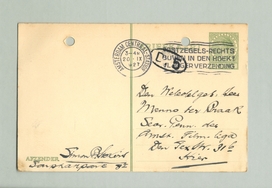 AMSTERDAM CENTRAAL STATION
3-4
20 IX
1927
POSTZEGELS-RECHTS
BOVEN IN DEN HOEK!
VLUGGER VERZENDING
5
Den Weledelgeb. Heer
Menno ter Braak
Secr. Penn. der
Amst. Film Liga
Den Texstr. 31
Hier
AFZENDER
Simon